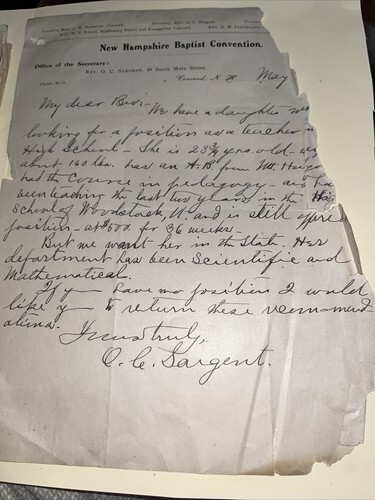 New Hampshire Baptist Convention.
Office of the Secretary:
Rev. O. C. Sargent, 49 South Main Street,
Concord, N. H. May
My dear Bro:- We have a daughter
looking for a position as a teacher in
High School - She is 23¾ yrs. old -
about 140 lbs. has an A.B. from Mt.
had the Course in pedagogy - and has
been teaching the last two years in the
School of Woodstock, Vt. and is still
position - at $500. for 36 weeks -
But we want her in the State. Her
department has been Scientific and
Mathematical.
If y have no position I would
like y to return these recommend-
ations.
Yours truly,
O. C. Sargent.